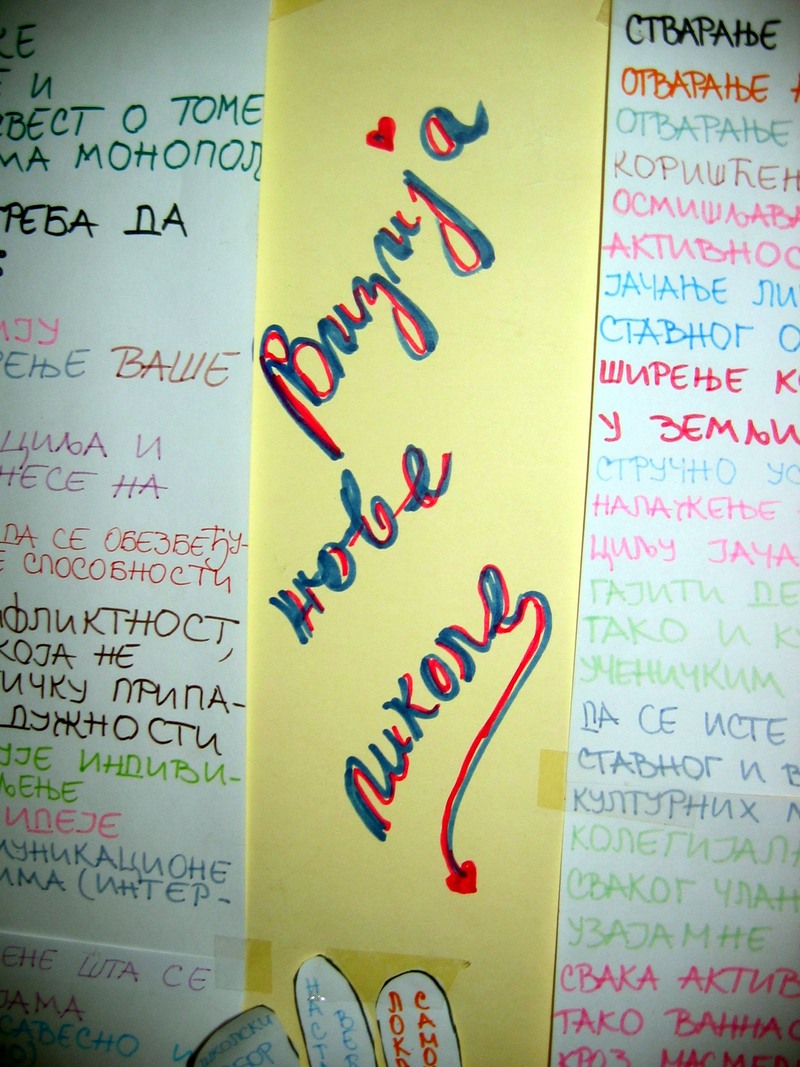 КЕ
Е И
СВЕСТ О ТОМЕ
МА МОНОПОЛ
ТРЕБА ДА
:
ИЈУ
РЕЊЕ ВАШЕ
ЦИЉА И
НЕСЕ НА
ДА СЕ ОБЕЗБЕЂУ-
Е СПОСОБНОСТИ
НФЛИКТНОСТ,
КОЈА НЕ
ИЧКУ ПРИПА-
ДУЖНОСТИ
УЈЕ ИНДИВИ-
ЉЕЊЕ
ИДЕЈЕ
МУНИКАЦИОНЕ
ИМА (ИНТЕР-
ЕНЕ ШТА СЕ
ЈАМА
САВЕСНО И
Визија
нове
школе
ШКОЛСКИ
НАСТ
ВЕЋ
ПОКР
САМО
СТВАРАЊЕ
ОТВАРАЊЕ
ОТВАРАЊЕ
КОРИШЋЕН
ОСМИШЉАВА
АКТИВНОС
ЈАЧАЊЕ ЛИ
СТАВНОГ О
ШИРЕЊЕ К
У ЗЕМЉИ
СТРУЧНО УС
НАЛАЖЕЊЕ
ЦИЉУ ЈАЧА
ГАЈИТИ ДЕ
ТАКО И К
УЧЕНИЧКИМ
ДА СЕ ИСТЕ
СТАВНОГ И В
КУЛТУРНИХ
КОЛЕГИЈАЛ
СВАКОГ ЧЛАН
УЗАЈАМНЕ
СВАКА АКТИВ
ТАКО ВАННАС
КРОЗ МАСМЕД